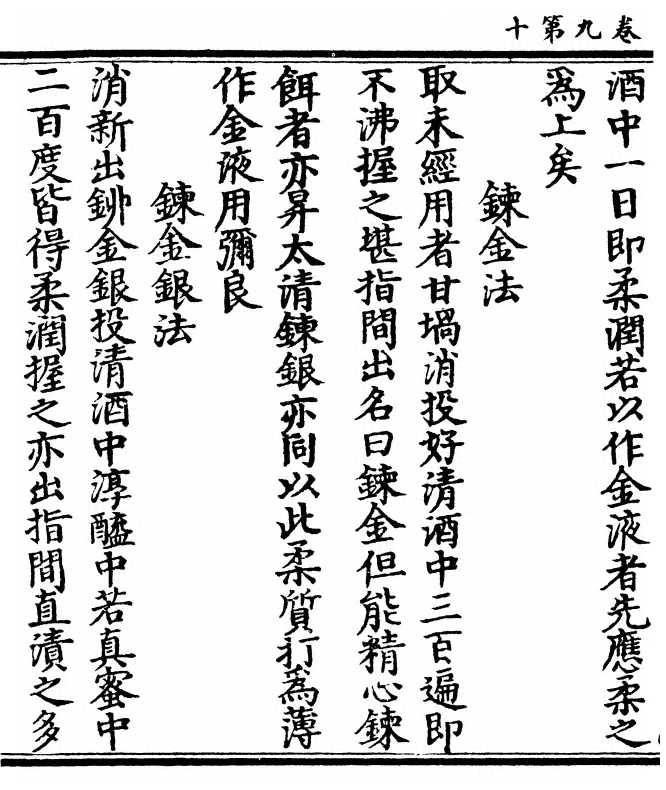 卷九第十
酒中一日即柔潤若以作金液者先應柔之
為上矣
鍊金法
取未經用者甘堝消投好清酒中三百遍即
不沸握之堪指間出名曰鍊金但能精心鍊
餌者亦昇太清鍊銀亦同以此柔質打為薄
作金液用彌良
鍊金銀法
消新出鉚金銀投清酒中淳醯中若真蜜中
二百度皆得柔潤握之亦出指間直漬之多